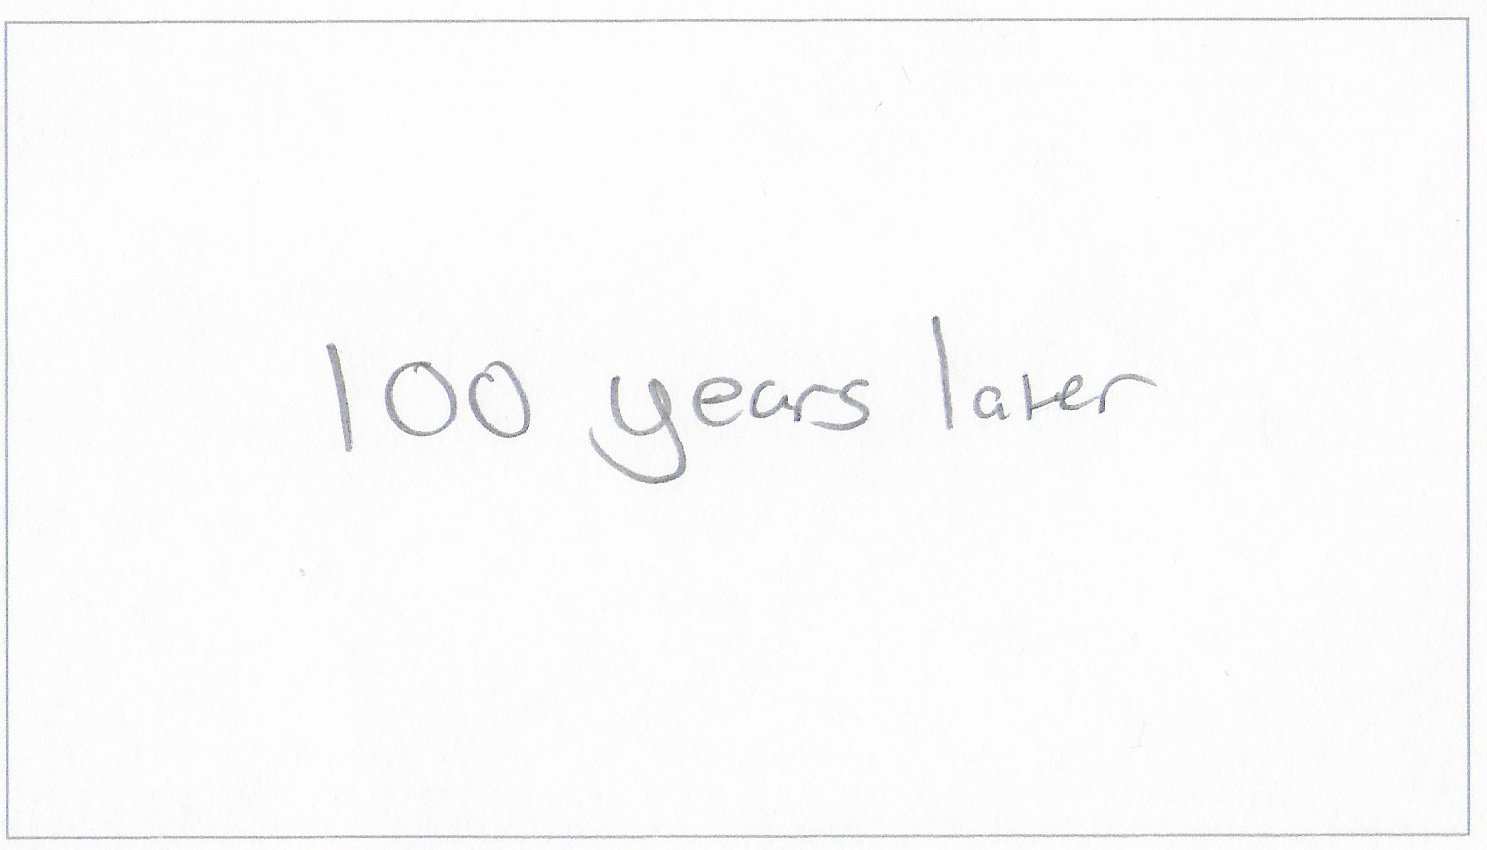 100 years later